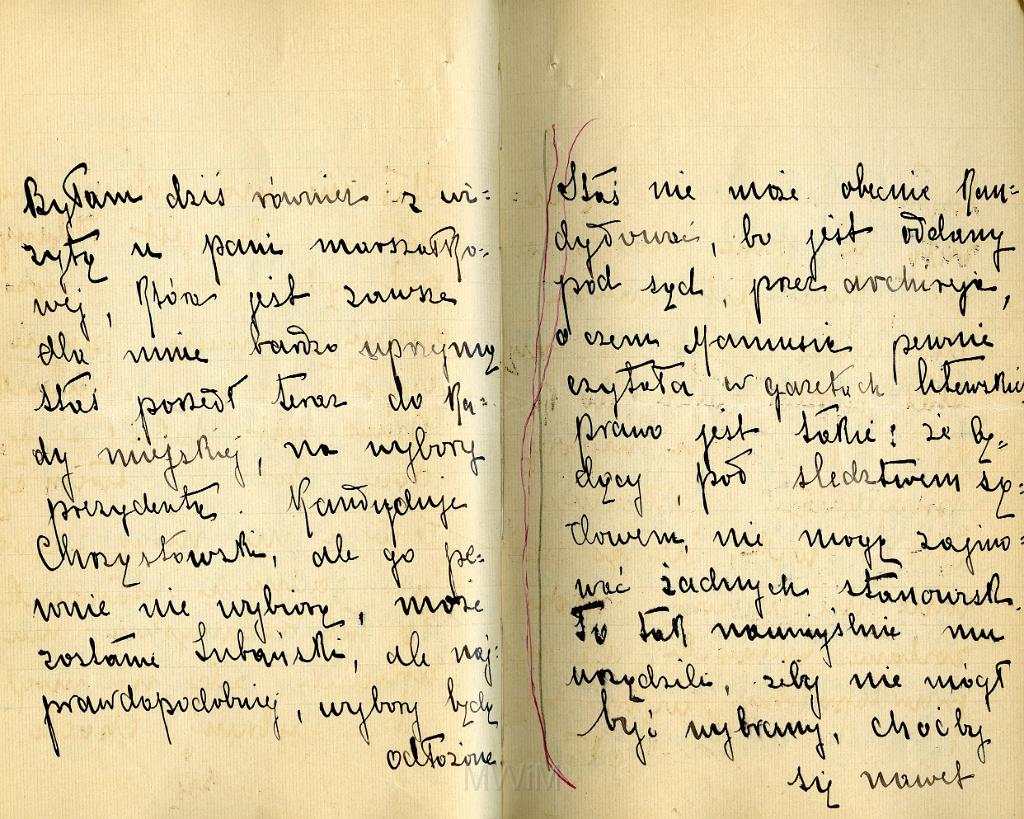 Byłam dziś również z wi=
zytą u pani marszałko=
wej, która jest zawsze
dla mnie bardzo uprzejmą
Staś poszedł teraz do Ra=
dy miejskiej, na wybory
prezydenta. Kandyduje
ale go pe=
wnie nie wybiorą, może
zostanie Lubański, ale naj=
prawdopodobniej, wybory będą
odłożone.
Staś nie może obecnie kan=
dydować, bo jest oddany
pod sąd, przez archireja,
o czem Mamusia pewnie
czytała w gazetach litewskich
prawo jest takie: że bę=
dący pod śledztwem są=
dowem, nie mogą zajmo=
wać żadnych stanowisk.
To tak naumyślnie mu
urządzili, żeby nie mógł
być wybrany, choćby
się nawet
MWiM